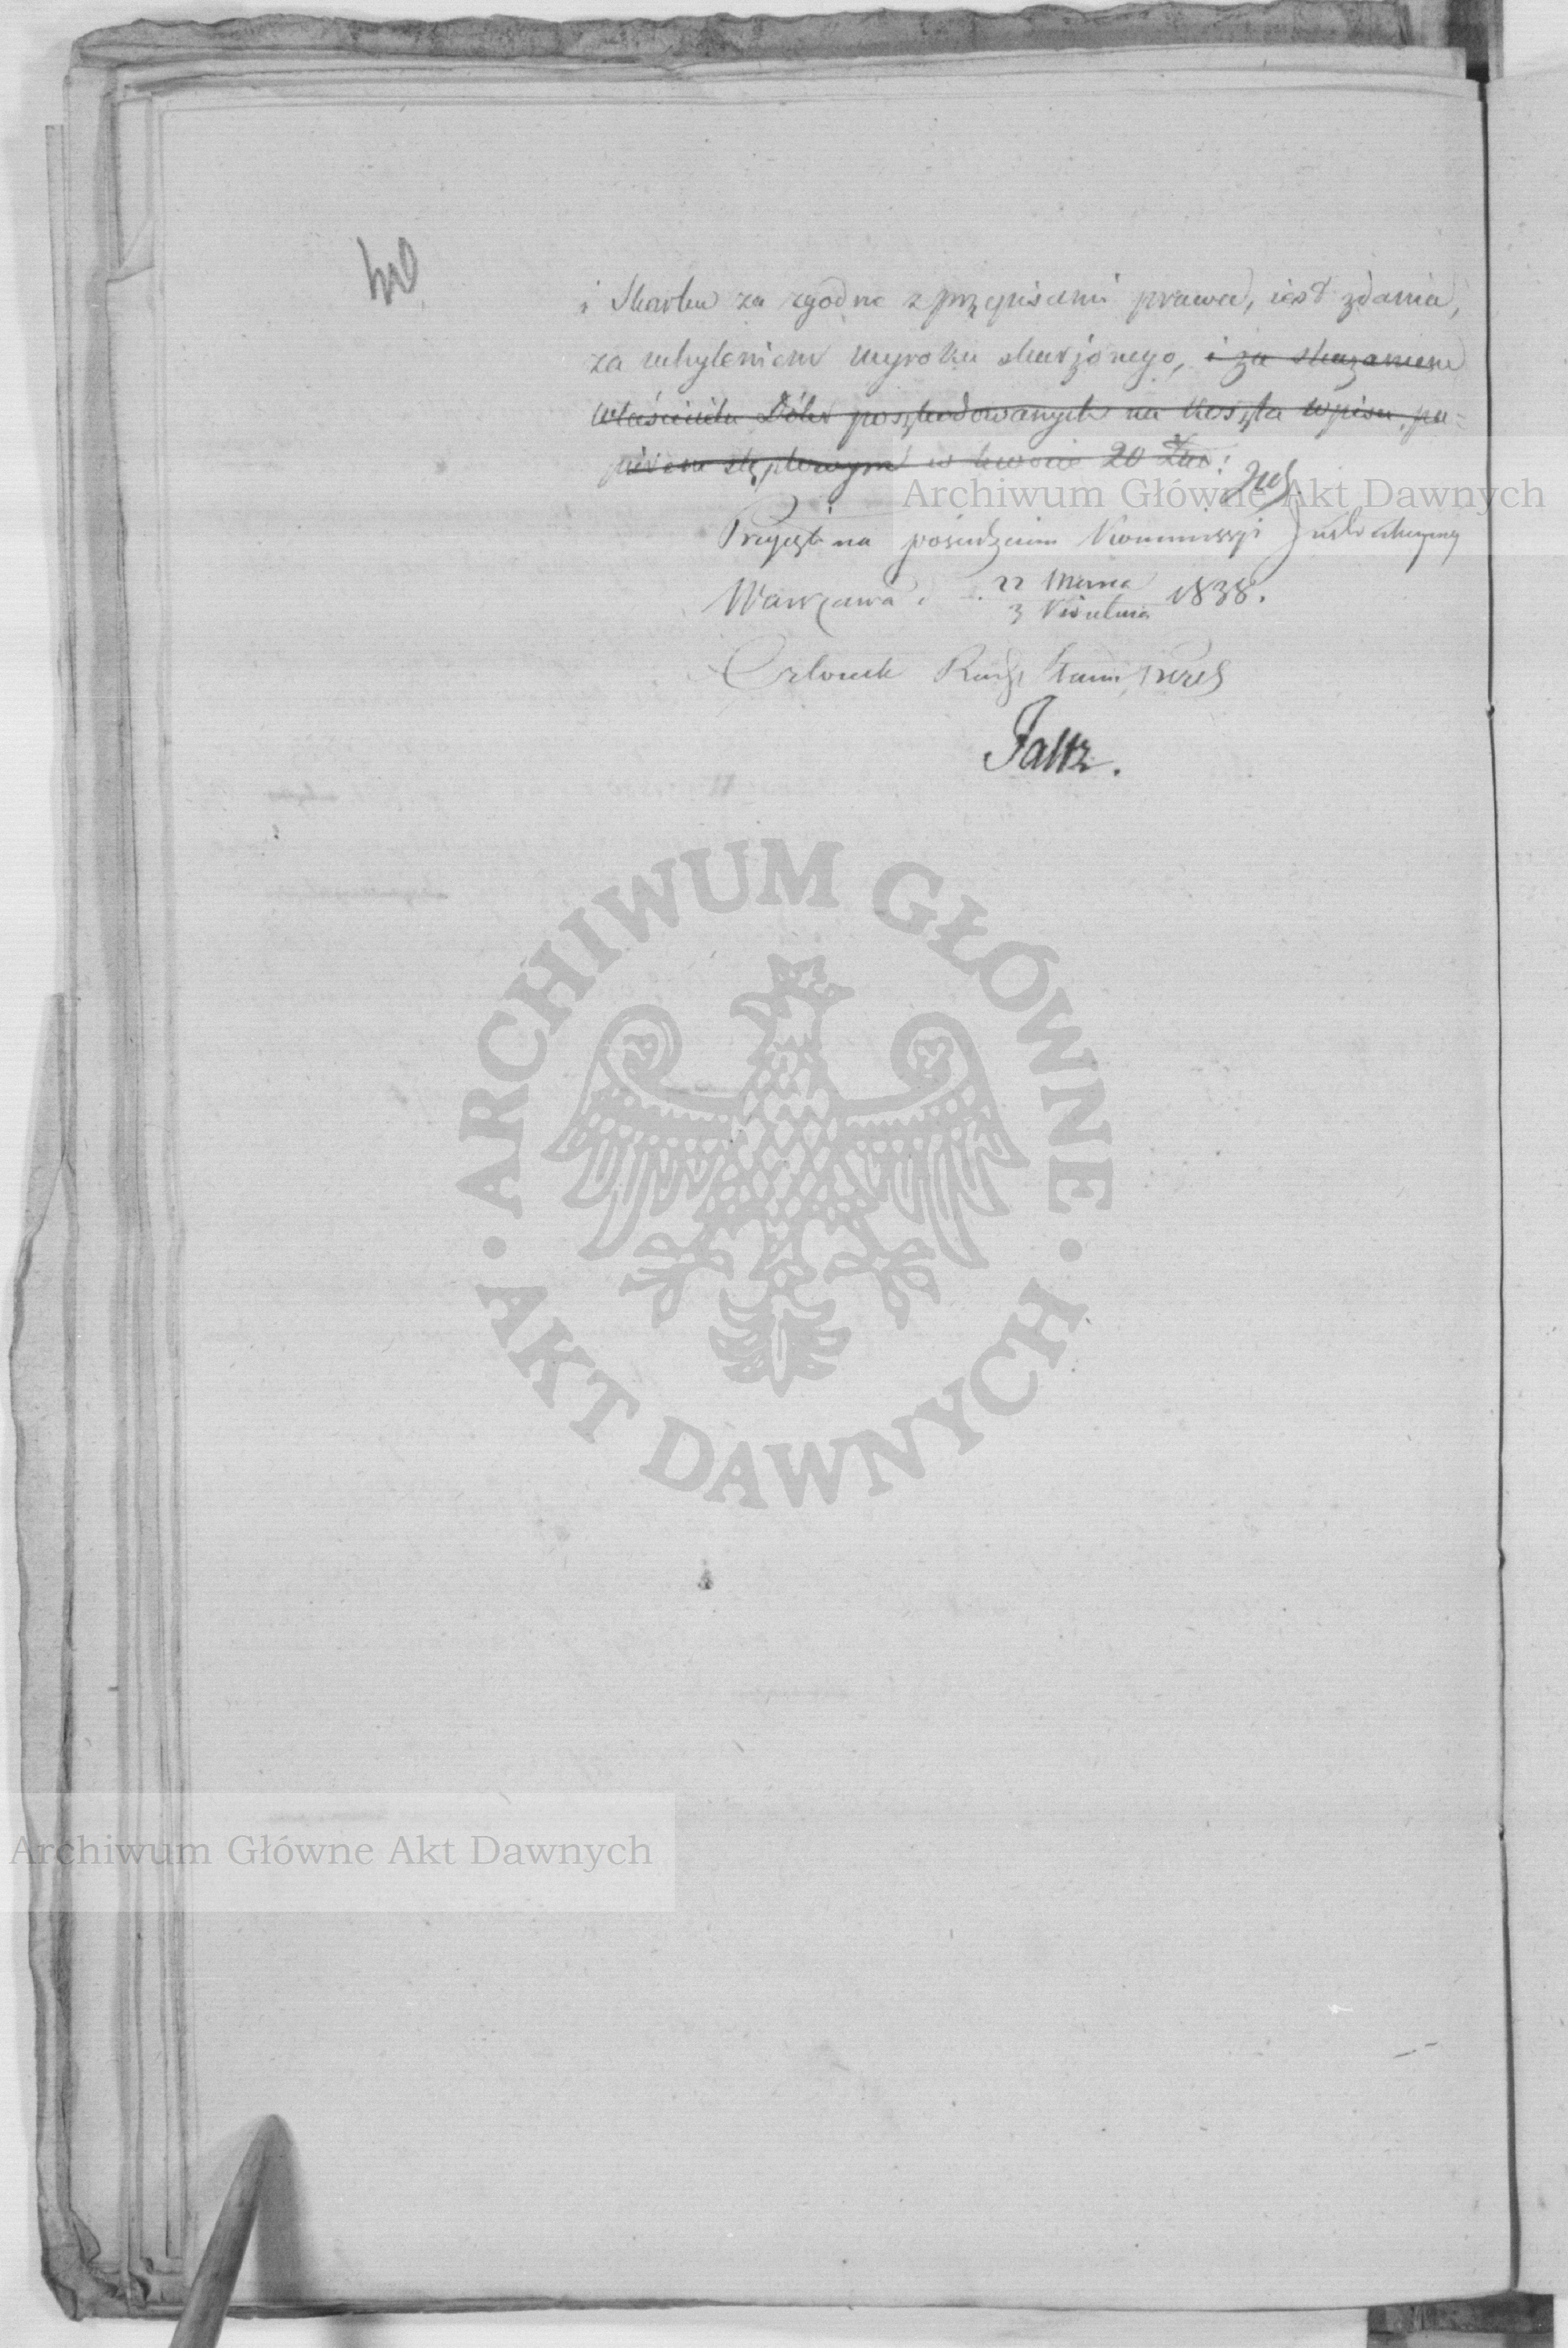 i Skarbu za zgodne z przepisami prawa, iest zdania,
za uchyleniem wyroku skarżonego, i za skazaniem
właściciela Dóbr poszkodowanych na koszta wpisu, pa=
pierem stęplowym w kwocie 20 Złp:
Przyięto na posiedzeniu Kommissyi
Warszawa 22 Marca
3 Kwietnia 1838.
Członek Rady Stanu
Faltz.
Archiwum Główne Akt Dawnych
ARCHIWUM GŁÓWNE
AKT DAWNYCH
Archiwum Główne Akt Dawnych